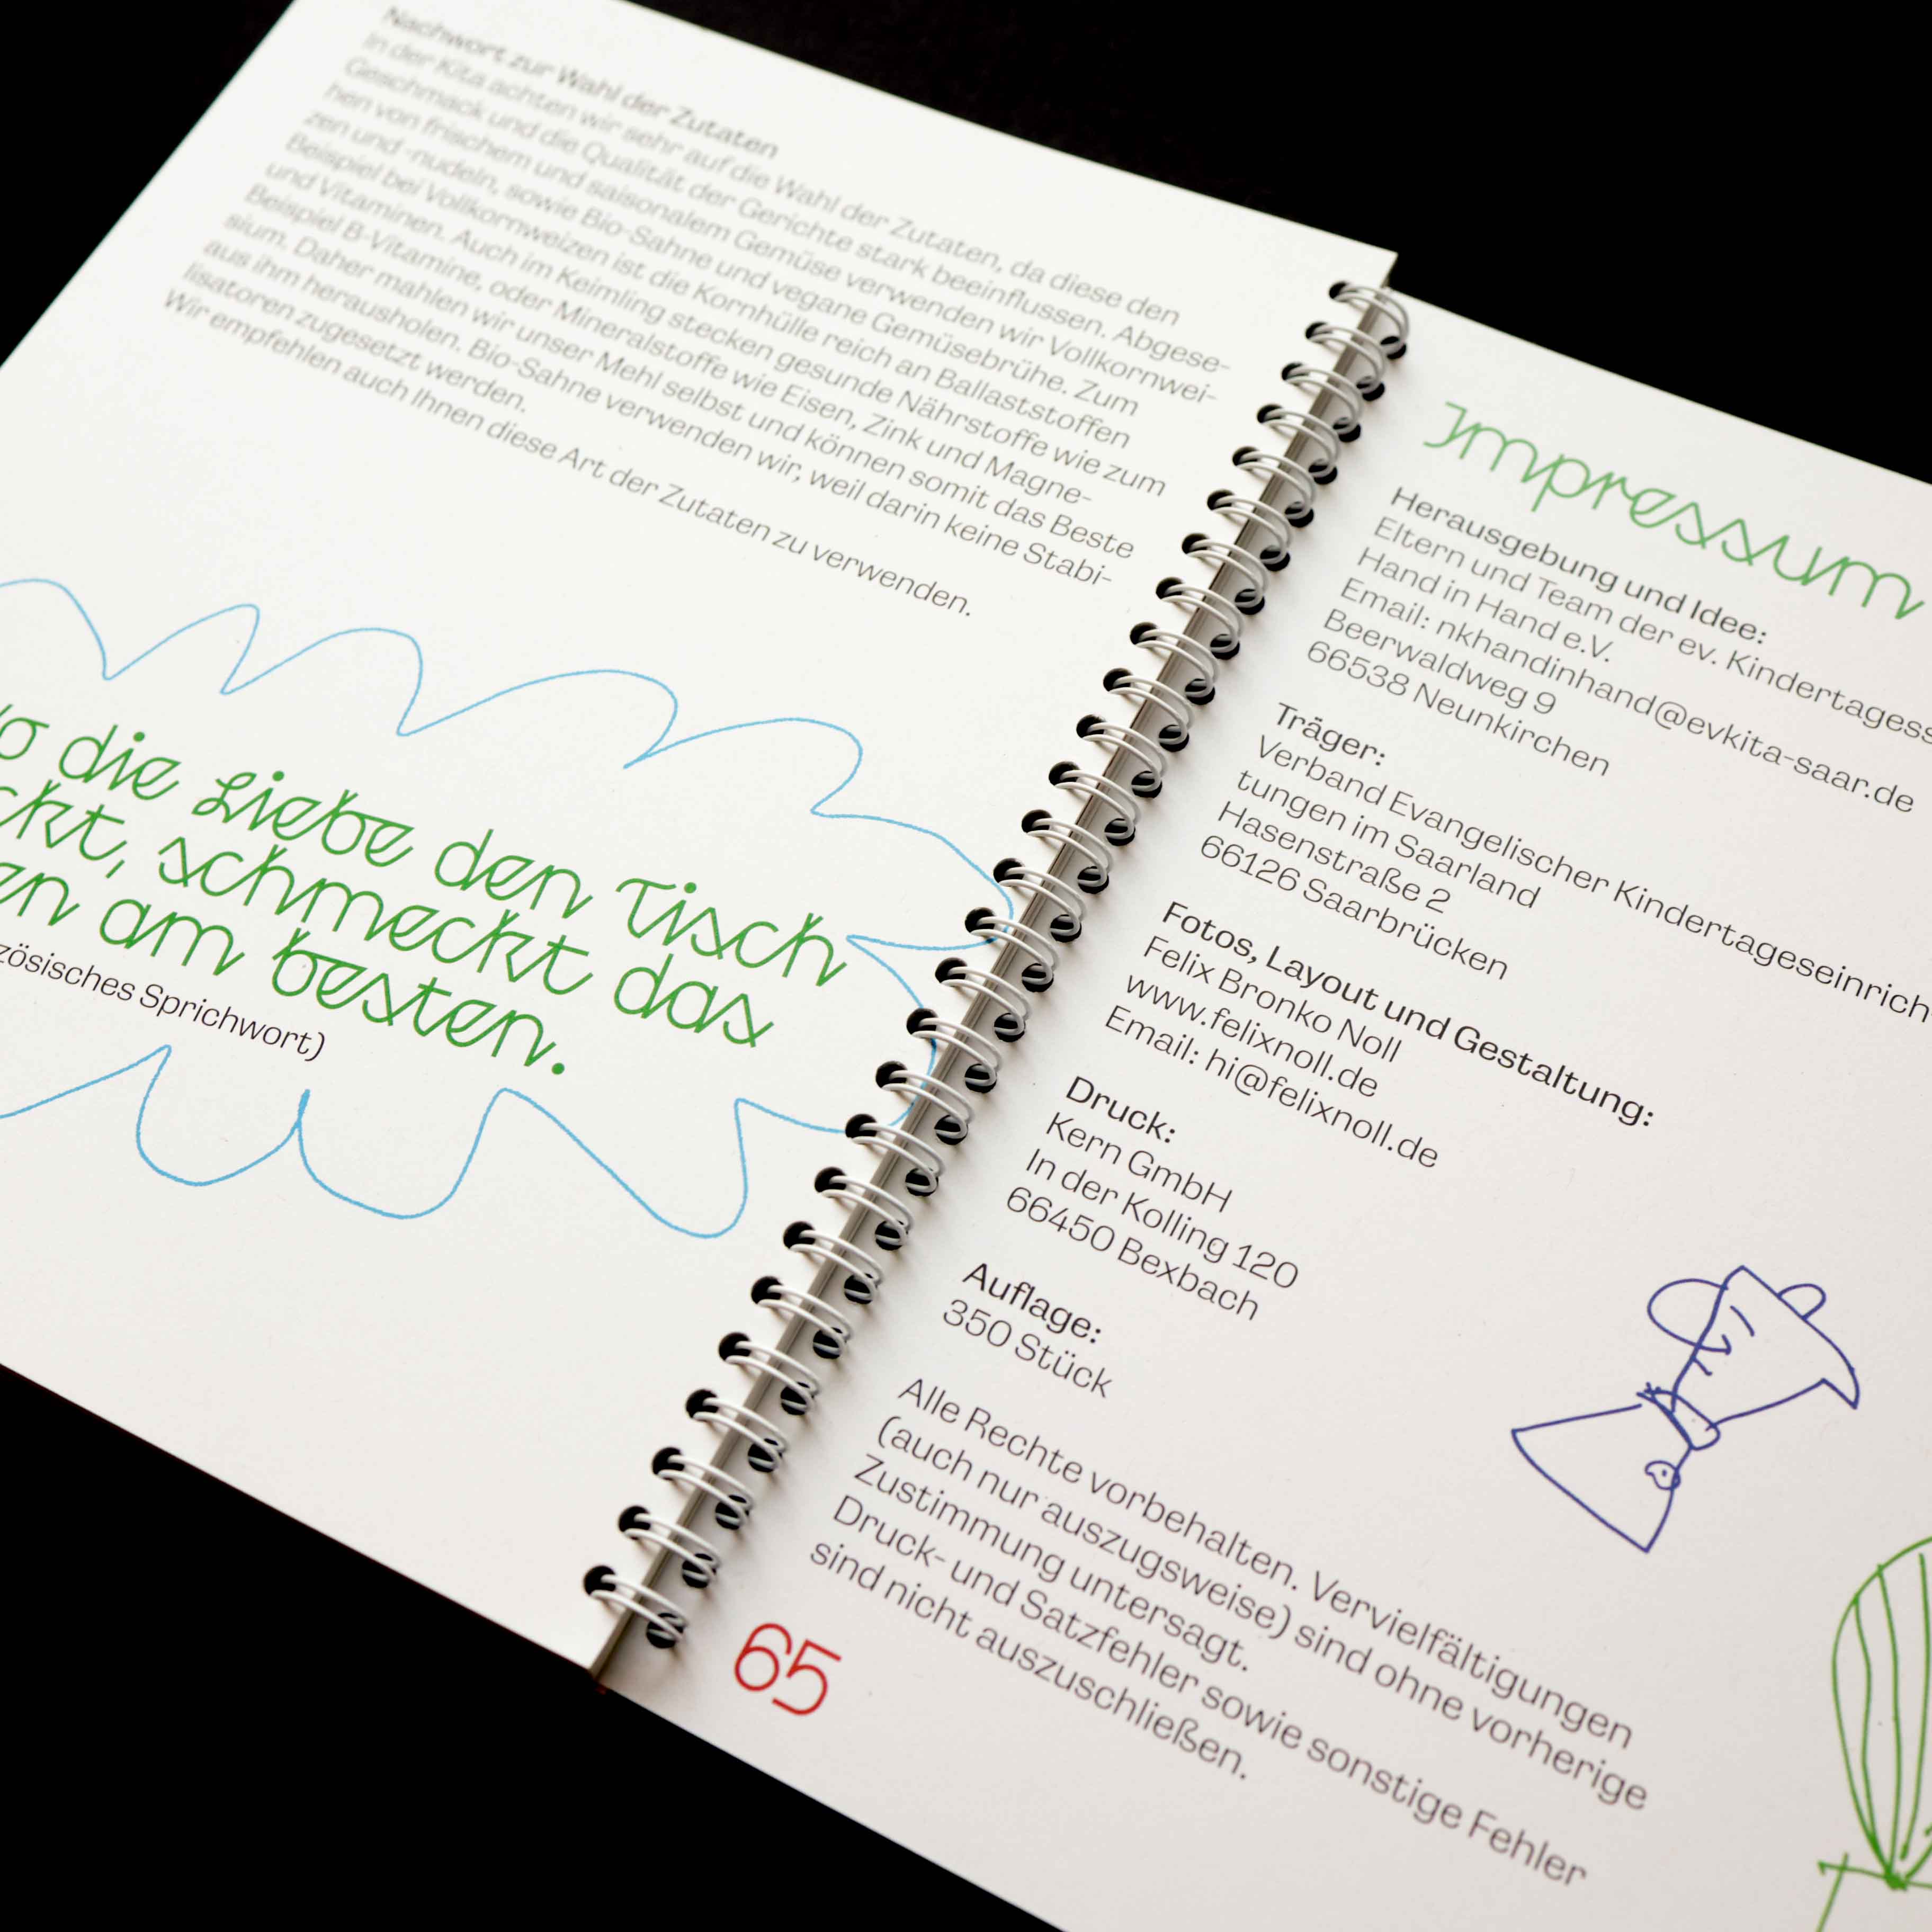 Nachwort zur Wahl der Zutaten
In der Kita achten wir sehr auf die Wahl der Zutaten, da diese den
Geschmack und die Qualität der Gerichte stark beeinflussen. Abgese-
hen von frischem und saisonalem Gemüse verwenden wir Vollkornwei-
zen und -nudeln, sowie Bio-Sahne und vegane Gemüsebrühe. Zum
Beispiel bei Vollkornweizen ist die Kornhülle reich an Ballaststoffen
und Vitaminen. Auch im Keimling stecken gesunde Nährstoffe wie zum
Beispiel B-Vitamine, oder Mineralstoffe wie Eisen, Zink und Magne-
sium. Daher mahlen wir unser Mehl selbst und können somit das Beste
aus ihm herausholen. Bio-Sahne verwenden wir, weil darin keine Stabi-
lisatoren zugesetzt werden.
Wir empfehlen auch Ihnen diese Art der Zutaten zu verwenden.
die Liebe den Tisch
schmeckt das
am besten.
Sprichwort)
Impressum
Herausgebung und Idee:
Eltern und Team der ev. Kindertagess
Hand in Hand e.V.
Email: nkhandinhand@evkita-saar.de
Beerwaldweg 9
66538 Neunkirchen
Träger:
Verband Evangelischer Kindertageseinrich
tungen im Saarland
Hasenstraße 2
66126 Saarbrücken
Fotos, Layout und Gestaltung:
Felix Bronko Noll
www.felixnoll.de
Email: hi@felixnoll.de
Druck:
Kern GmbH
In der Kolling 120
66450 Bexbach
Auflage:
350 Stück
Alle Rechte vorbehalten. Vervielfältigungen
(auch nur auszugsweise) sind ohne vorherige
Zustimmung untersagt.
Druck- und Satzfehler sowie sonstige Fehler
sind nicht auszuschließen.
65